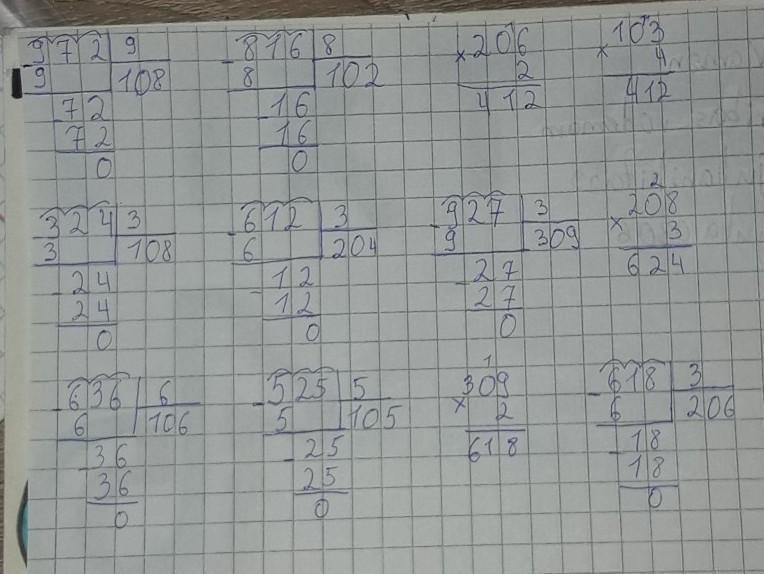 - 972 | 9
9 | 108
- 72
72
0
- 816 | 8
8 | 102
- 16
16
0
× 206
2
412
× 103
4
412
- 324 | 3
3 | 108
- 24
24
0
- 612 | 3
6 | 204
- 12
12
0
- 927 | 3
9 | 309
- 27
27
0
2
× 208
3
624
- 636 | 6
6 | 106
- 36
36
0
- 525 | 5
5 | 105
- 25
25
0
1
× 309
2
618
- 618 | 3
6 | 206
- 18
18
0